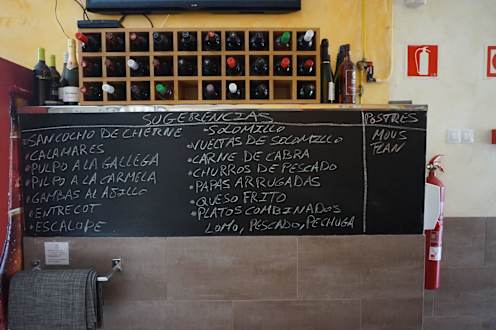 SUGERENCIAS
• SANCOCHO DE CHERNE
• CALAMARES
• PULPO A LA GALLEGA
• PULPO A LA CARMELA
• GAMBAS AL AJILLO
• ENTRECOT
• ESCALOPE
• SOLOMILLO
• VUELTAS DE SOLOMILLO
• CARNE DE CABRA
• CHURROS DE PESCADO
• PAPAS ARRUGADAS
• QUESO FRITO
• PLATOS COMBINADOS
LOMO, PESCADO, PECHUGA
POSTRES
MOUS
FLAN